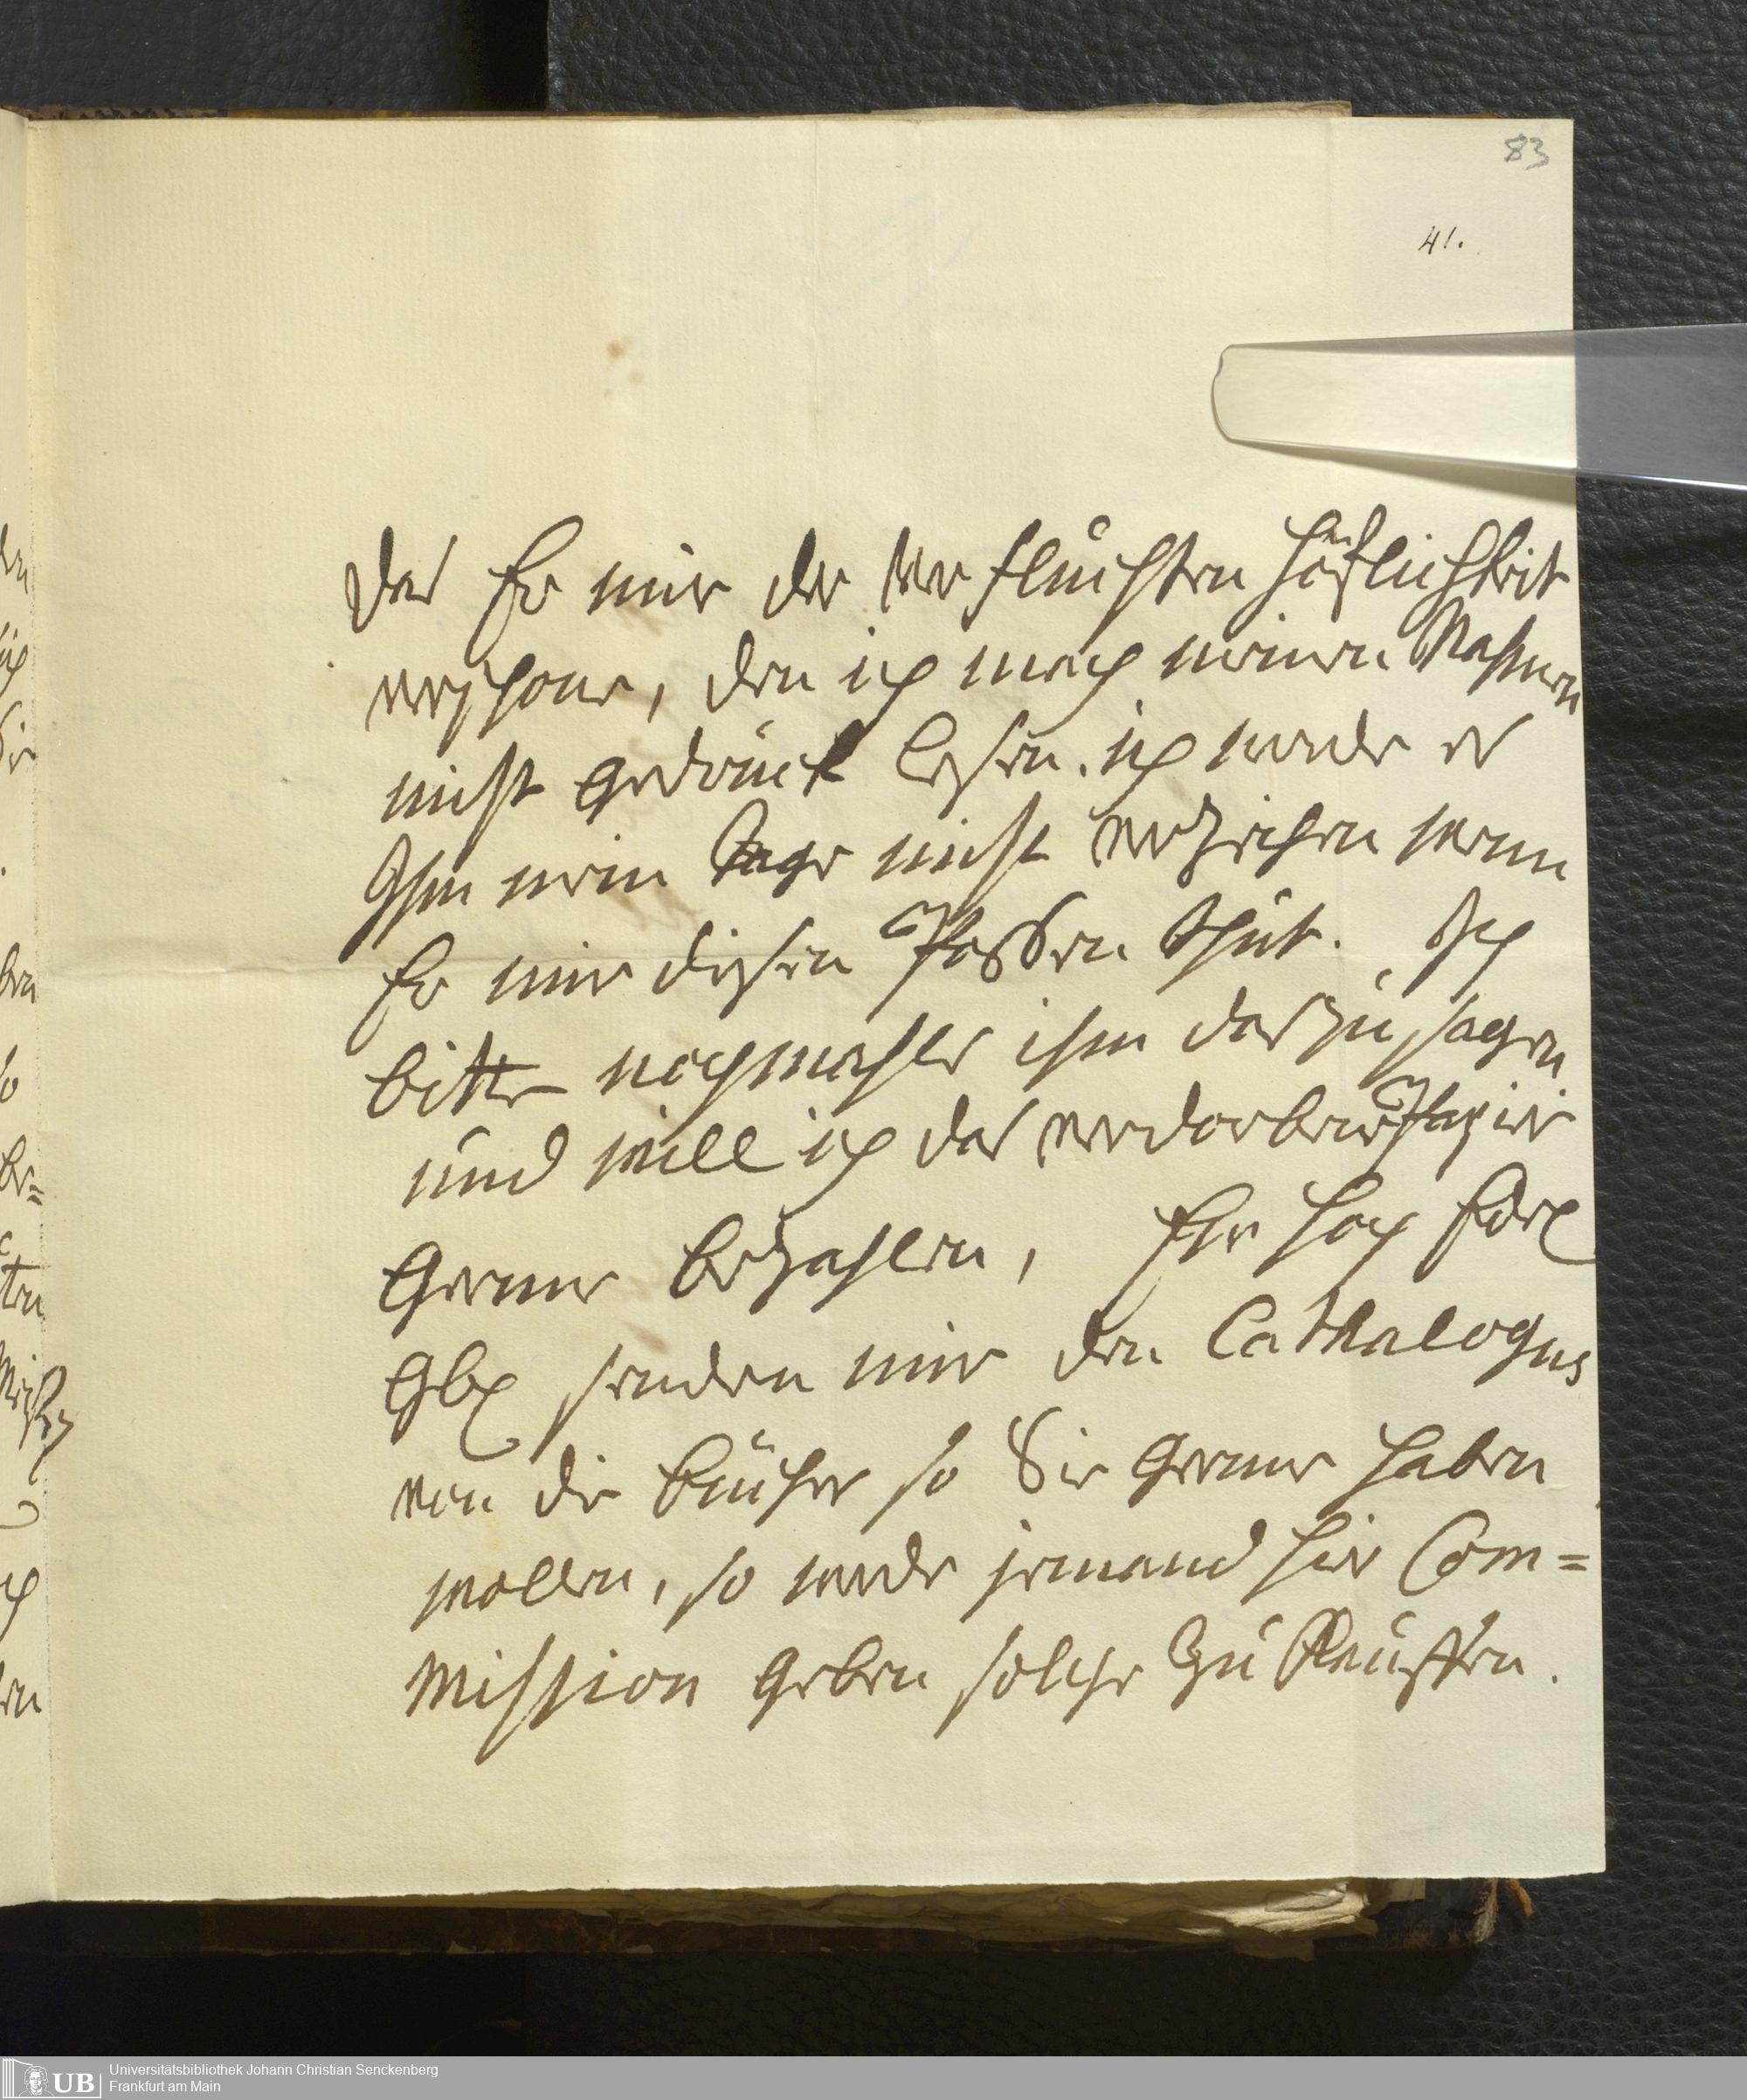 83
41.
das Er mir der verfluchten Höflichkeit
verschone, den ich mag meinen Nahmen
nicht gedruckt lesen. ich werde es
Ihm mein Tage nicht verzeihen wenn
Er mir diesen Possen thut. Ich
bitte nochmahls ihm das zu sagen
und will ich das verdorbene Papier
Gerne bezahlen, Ew HochEdel
Gb senden mir den Cathalogus
von die bücher so Sie Gerne haben
wollen, so werde jemand hier Com=
Mission geben solche zu Kauffen.
UB
Universitätsbibliothek Johann Christian Senckenberg
Frankfurt am Main